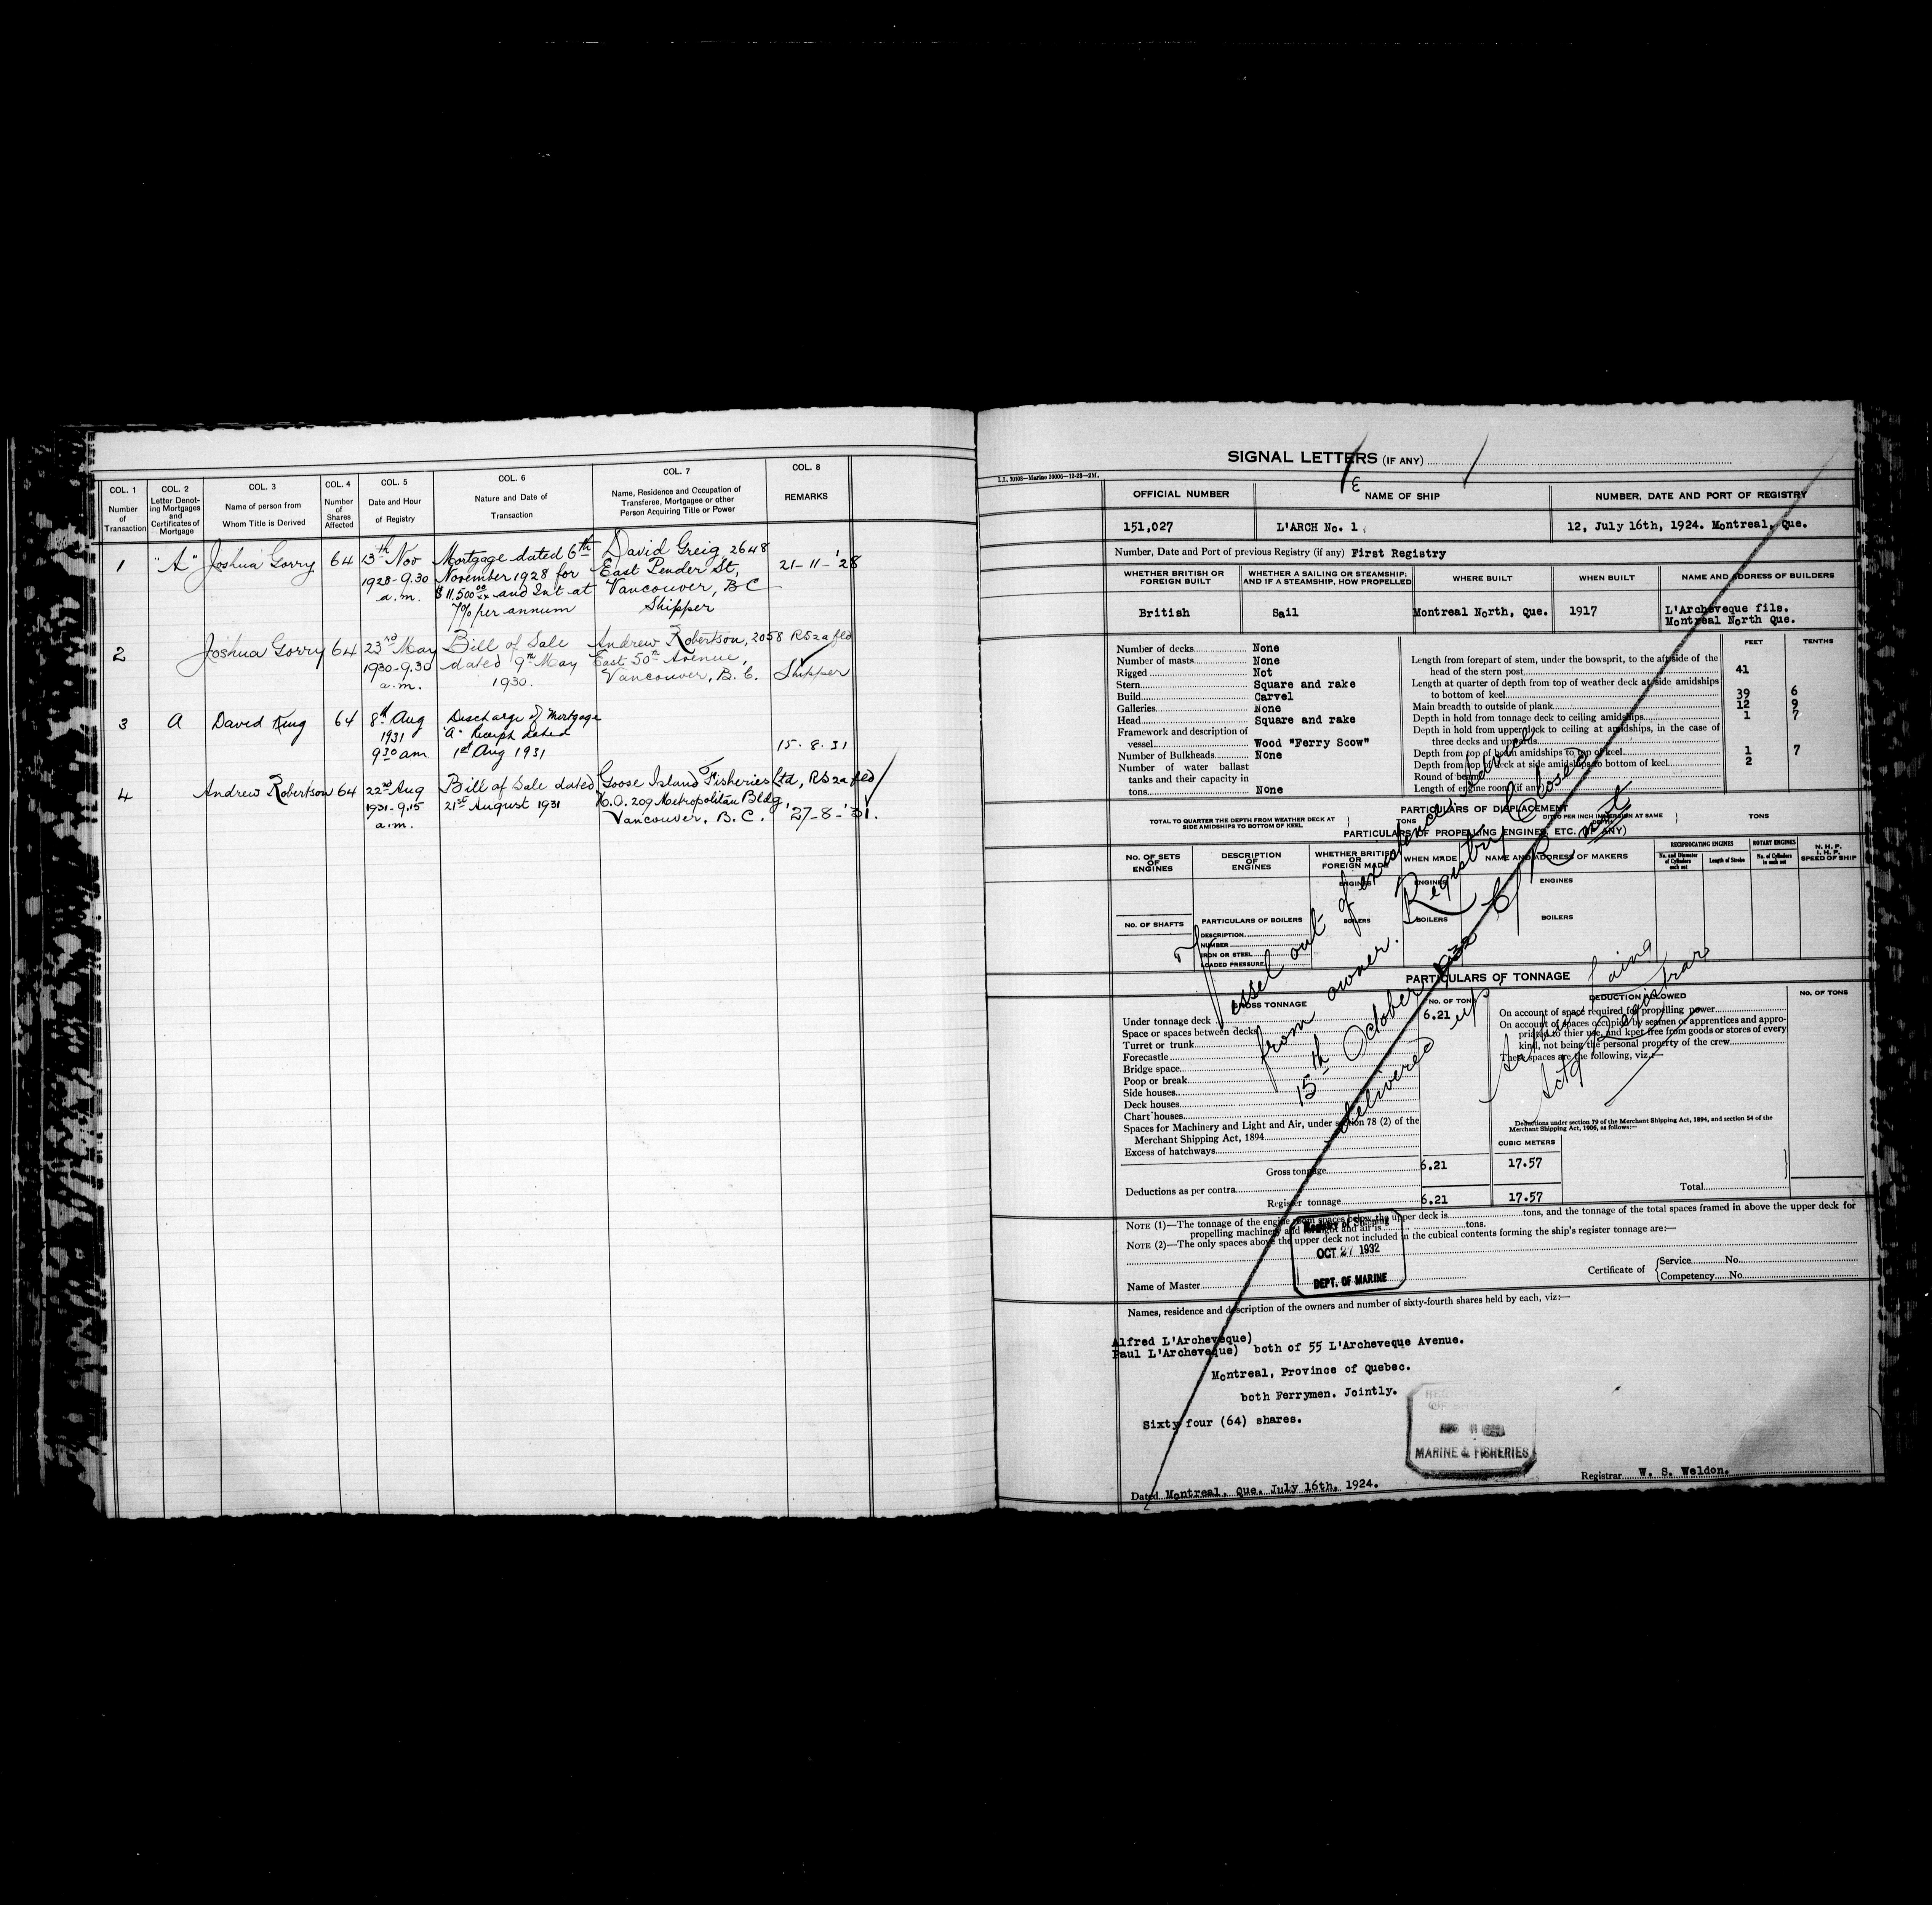 COL. 1
Number
of
Transaction
COL. 2
Letter Denot-
ing Mortgages
and
Certificates of
Mortgage
COL. 3
Name of person from
Whom Title is Derived
COL. 4
Number
of
Shares
Affected
COL. 5
Date and Hour
of Registry
COL. 6
Nature and Date of
Transaction
COL. 7
Name, Residence and Occupation of
Transferee, Mortgagee or other
Person Acquiring Title or Power
COL. 8
REMARKS
1 "A" Joshua Gorry 64 13th Nov Mortgage dated 6th David Greig, 2648
1928-9.30 November 1928 for East Pender St, 21-11-'28
a.m. $11,500 00/xx and Int at Vancouver, B C
7% per annum Shipper
2 Joshua Gorry 64 23rd May Bill of Sale Andrew Robertson, 2058 RS2a fld
1930-9.30 dated 9th May East 50th Avenue,
a.m. 1930. Vancouver, B. C. Shipper
3 A David 64 8th Aug Discharge of Mortgage
1931 "A" Receipt dated
9 30 am 1st Aug 1931 15.8.31
4 Andrew Robertson 64 22nd Aug Bill of Sale dated Goose Island Fisheries Ltd, RS2a fld
1931-9.15 21st August 1931 H.O. 209 Metropolitan Bldg
a.m. Vancouver, B. C. '27-8-'31.
SIGNAL LETTERS (IF ANY)
L.L. 70105—Marine 20006—12-23—2M.
OFFICIAL NUMBER NAME OF SHIP NUMBER, DATE AND PORT OF REGISTRY
151,027 L'ARCH No. 1 12, July 16th, 1924. Montreal, Que.
Number, Date and Port of previous Registry (if any) First Registry
WHETHER BRITISH OR
FOREIGN BUILT
WHETHER A SAILING OR STEAMSHIP;
AND IF A STEAMSHIP, HOW PROPELLED
WHERE BUILT
WHEN BUILT
NAME AND ADDRESS OF BUILDERS
British Sail Montreal North, Que. 1917 L'Archeveque fils.
Montreal North Que.
FEET TENTHS
Number of decks None
Number of masts None
Rigged Not
Stern Square and rake
Build Carvel
Galleries None
Head Square and rake
Framework and description of
vessel Wood "Ferry Scow"
Number of Bulkheads None
Number of water ballast
tanks and their capacity in
tons None
Length from forepart of stem, under the bowsprit, to the aft side of the
head of the stern post 41
Length at quarter of depth from top of weather deck at side amidships
to bottom of keel 39 6
Main breadth to outside of plank 12 9
Depth in hold from tonnage deck to ceiling amidships 1 7
Depth in hold from upper deck to ceiling at amidships, in the case of
three decks and upwards
Depth from top of beam amidships to top of keel 1 7
Depth from top of deck at side amidships to bottom of keel 2
Round of beam
Length of engine room (if any)
PARTICULARS OF DISPLACEMENT
TOTAL TO QUARTER THE DEPTH FROM WEATHER DECK AT
SIDE AMIDSHIPS TO BOTTOM OF KEEL
TONS
DITTO PER INCH IMMERSION AT SAME
DEPTH
TONS
PARTICULARS OF PROPELLING ENGINES, ETC. (IF ANY)
NO. OF SETS
OF
ENGINES
DESCRIPTION
OF
ENGINES
WHETHER BRITISH
OR
FOREIGN MADE
WHEN MADE
NAME AND ADDRESS OF MAKERS
RECIPROCATING ENGINES
No. and Diameter
of Cylinders
each set
Length of Stroke
ROTARY ENGINES
No. of Cylinders
in each set
N. H. P.
I. H. P.
SPEED OF SHIP
ENGINES ENGINES ENGINES
NO. OF SHAFTS
PARTICULARS OF BOILERS
BOILERS BOILERS BOILERS
DESCRIPTION
NUMBER
IRON OR STEEL
LOADED PRESSURE
Vessel out of existence advice
from owner. Registry Closed
15th October 1932 C/R not
delivered up
Laing
Actg Registrar
PARTICULARS OF TONNAGE
GROSS TONNAGE NO. OF TONS
Under tonnage deck 6.21
Space or spaces between decks
Turret or trunk
Forecastle
Bridge space
Poop or break
Side houses
Deck houses
Chart houses
Spaces for Machinery and Light and Air, under section 78 (2) of the
Merchant Shipping Act, 1894
Excess of hatchways
Gross tonnage 6.21 17.57
Deductions as per contra
Register tonnage 6.21 17.57
DEDUCTION ALLOWED NO. OF TONS
On account of space required for propelling power
On account of spaces occupied by seamen or apprentices and appro-
priated to thier use, and kpet free from goods or stores of every
kind, not being the personal property of the crew
These spaces are the following, viz:—
Deductions under section 79 of the Merchant Shipping Act, 1894, and section 54 of the
Merchant Shipping Act, 1906, as follows:—
CUBIC METERS
Total
NOTE (1)—The tonnage of the engine room spaces below the upper deck is tons, and the tonnage of the total spaces framed in above the upper deck for
propelling machinery and for light and air is tons.
NOTE (2)—The only spaces above the upper deck not included in the cubical contents forming the ship's register tonnage are:—
Registry of Shipping
OCT 27 1932
DEPT. OF MARINE
Name of Master
Certificate of
Service No.
Competency No.
Names, residence and description of the owners and number of sixty-fourth shares held by each, viz:—
Alfred L'Archeveque)
Paul L'Archeveque) both of 55 L'Archeveque Avenue.
Montreal, Province of Quebec.
both Ferrymen. Jointly.
Sixty four (64) shares.
MARINE & FISHERIES
Dated Montreal, Que. July 16th, 1924.
Registrar W. S. Weldon.